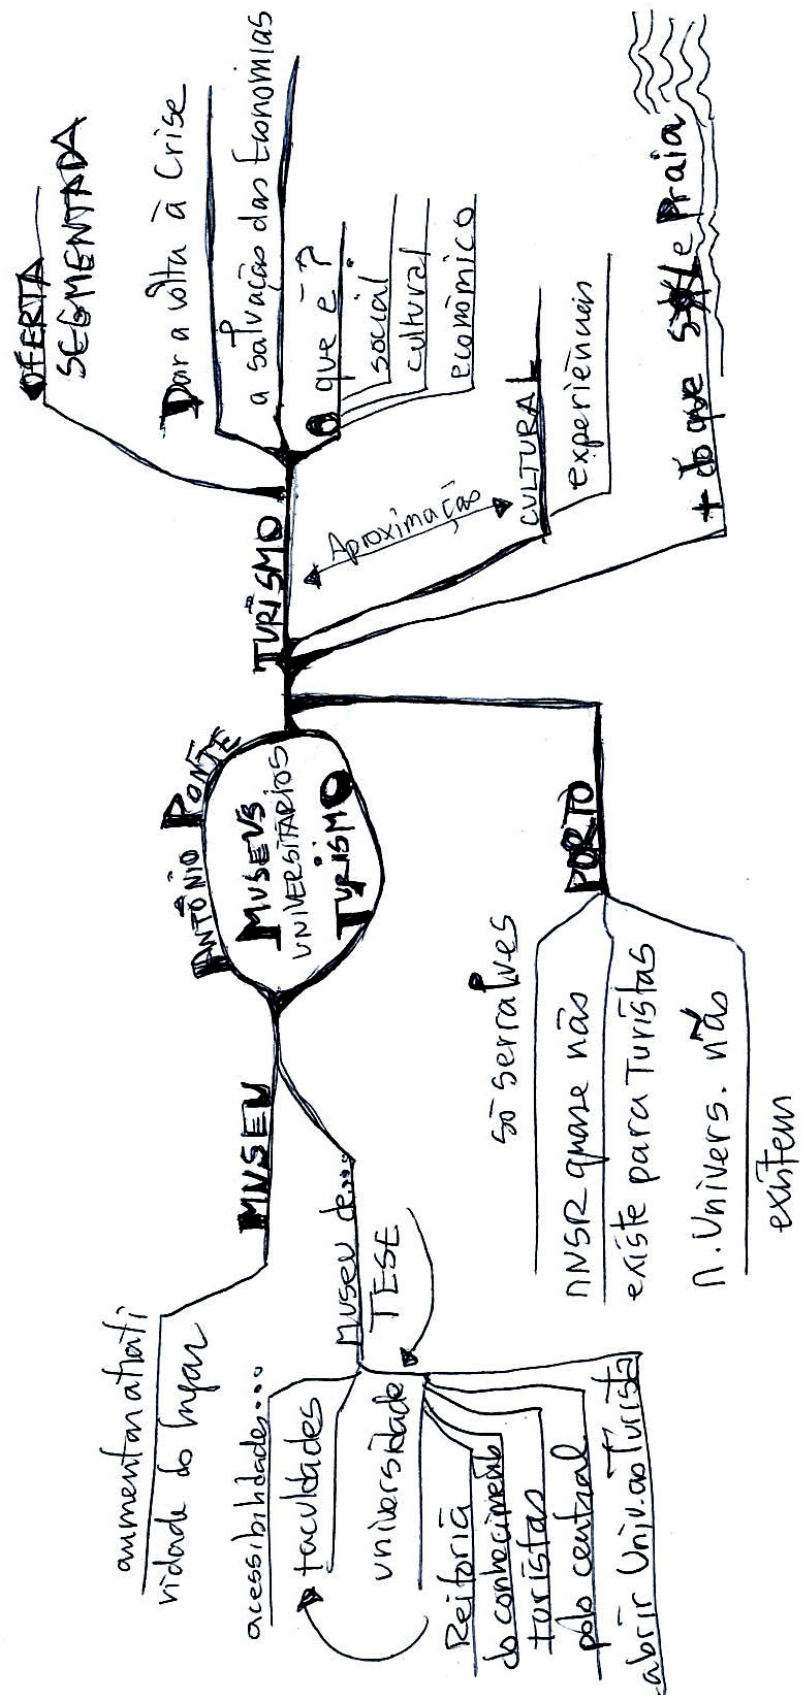 ANTÓNIO PONTE
MUSEUS
UNIVERSITÁRIOS
TURISMO
TURISMO
OFERTA
SEGMENTADA
Dar a volta à Crise
a salvação das Economias
O que é?
social
cultural
económico
Aproximação
CULTURAL
experiências
+ do que Sol e Praia
PORTO
só Serralves
MNSR quase não
existe para Turistas
M. Univers. não
existem
MUSEU
aumentar atrati
vidade do lugar
Museu de....
TESE
acessibilidades...
faculdades
universidade
Reitoria
do conhecimento
turistas
polo central
abrir Univ. ao Turista